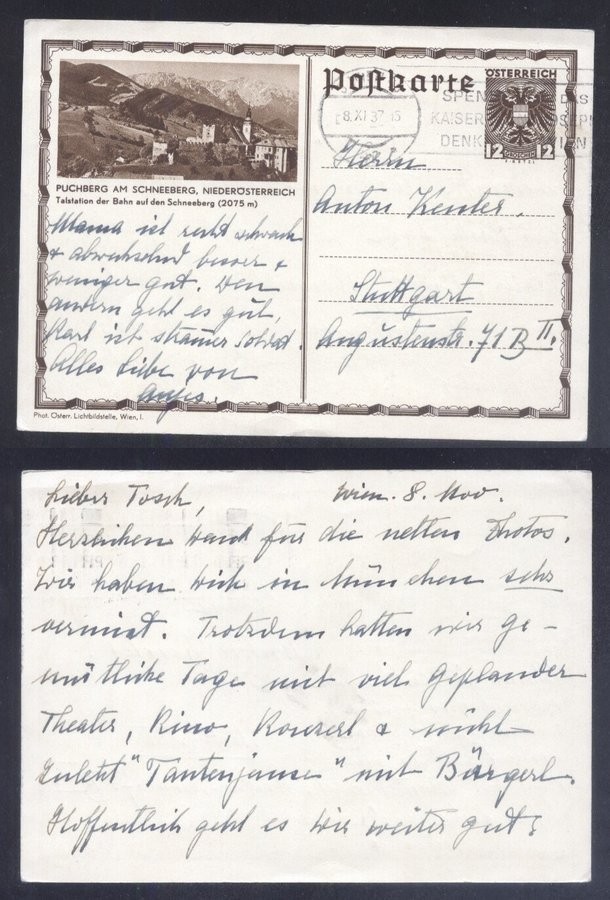 Postkarte
ÖSTERREICH
12 GROSCHEN 12
8.XI.37 15
SPEN DAS
KAISER
DENK IEN
PUCHBERG AM SCHNEEBERG, NIEDERÖSTERREICH
Talstation der Bahn auf den Schneeberg (2075 m)
Mama ist recht schwach
& abwechselnd besser &
weniger gut. Den
andern geht es gut,
Karl ist strammer Soldat.
Alles Liebe von
Phot. Österr. Lichtbildstelle, Wien, I.
Herrn
Anton Kenter.
Stuttgart
Augustenstr. 71 B II.
Lieber Tosch, Wien. 8. Nov.
Herzlichen Dank für die netten Photos.
Wir haben Dich in München sehr
vermisst. Trotzdem hatten wir ge-
mütliche Tage mit viel Geplauder
Theater, Kino, Konzert & nicht
zuletzt "Tantenjause" mit Bürgerl.
Hoffentlich geht es Dir weiter gut!